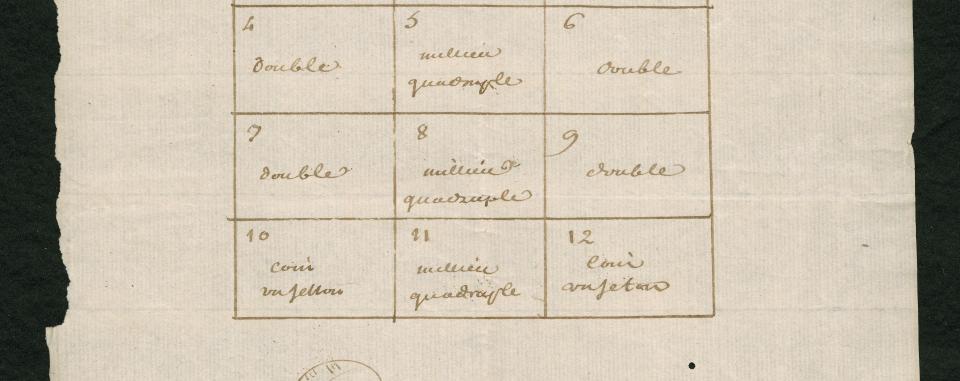 4
double
5
millieu
quadruple
6
double
7
double
8
millieu
quadruple
9
double
10
coin
un jetton
11
millieu
quadruple
12
coin
un jeton